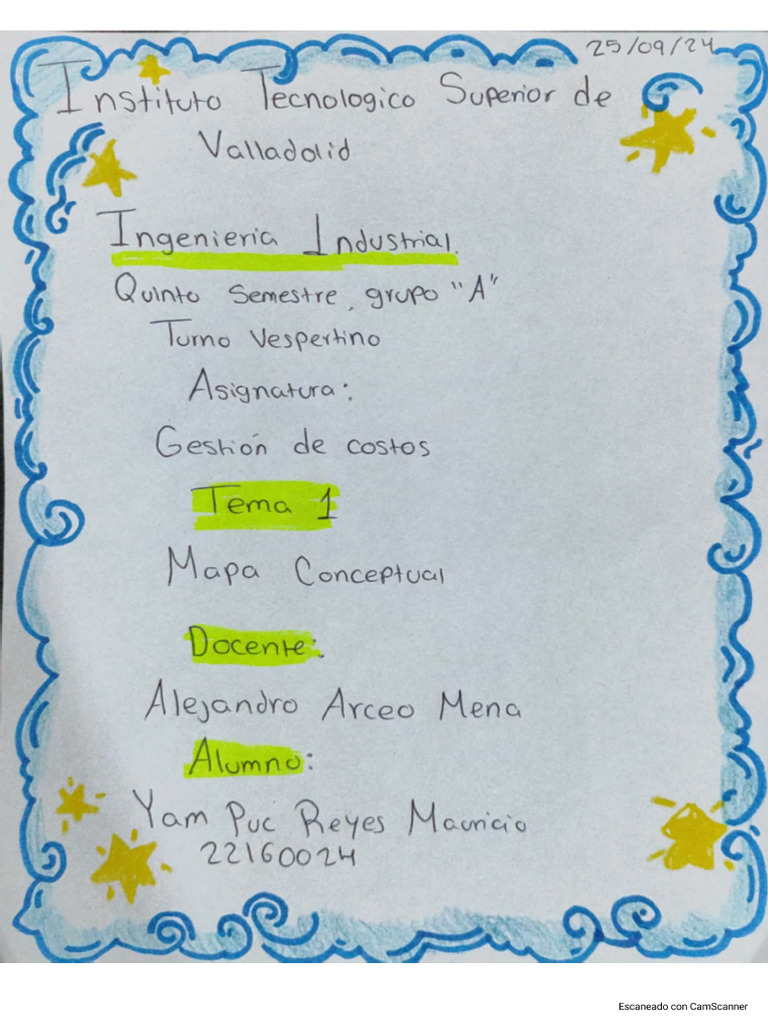 25/09/24
Instituto Tecnologico Superior de
Valladolid
Ingenieria Industrial.
Quinto Semestre, grupo "A"
Turno Vespertino
Asignatura:
Gestión de costos
Tema 1
Mapa Conceptual
Docente:
Alejandro Arceo Mena
Alumno:
Yam Puc Reyes Mauricio
22160024
Escaneado con CamScanner